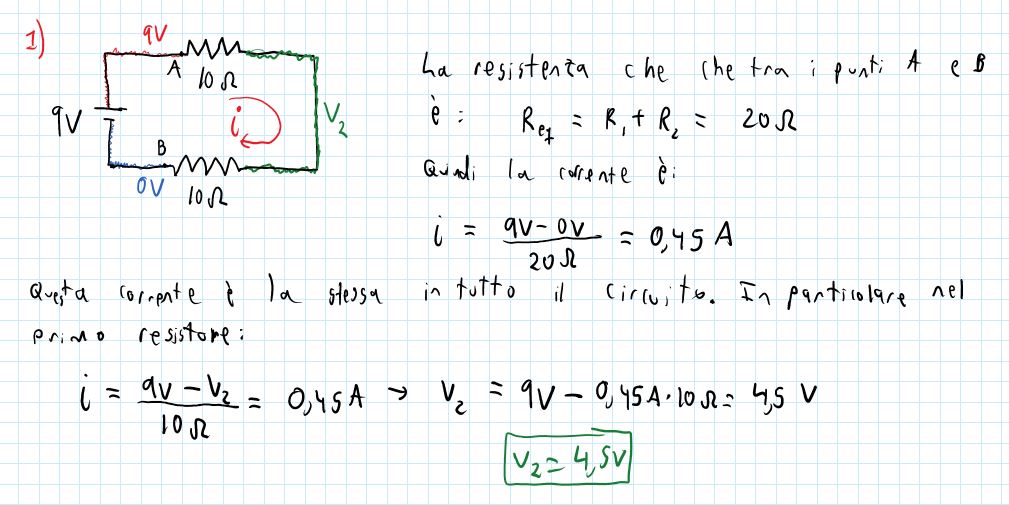 1)
9V
A
10Ω
9V
i
V₂
B
0V
10Ω
La resistenza che che tra i punti A e B
è: Req = R₁ + R₂ = 20Ω
Quindi la corrente è:
i = (9V - 0V)/20Ω = 0,45 A
Questa corrente è la stessa in tutto il circuito. In particolare nel
primo resistore:
i = (9V - V₂)/10Ω = 0,45A → V₂ = 9V - 0,45A·10Ω = 4,5 V
V₂ = 4,5V